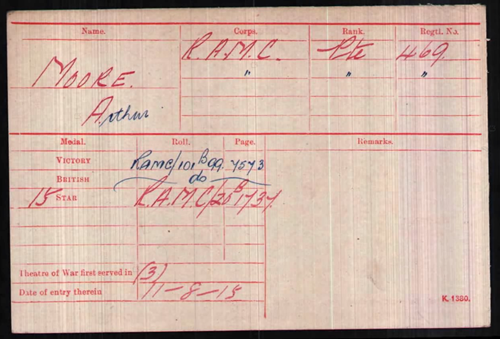 Name. Corps. Rank. Regtl. No.
R.A.M.C. Pte 469.
MOORE. " " "
Arthur
Medal. Roll. Page. Remarks.
VICTORY RAMC/101 B99 7573
BRITISH do
15 STAR R.A.M.C/20B 1737
Theatre of War first served in (3)
Date of entry therein 11-8-15
K. 1380.